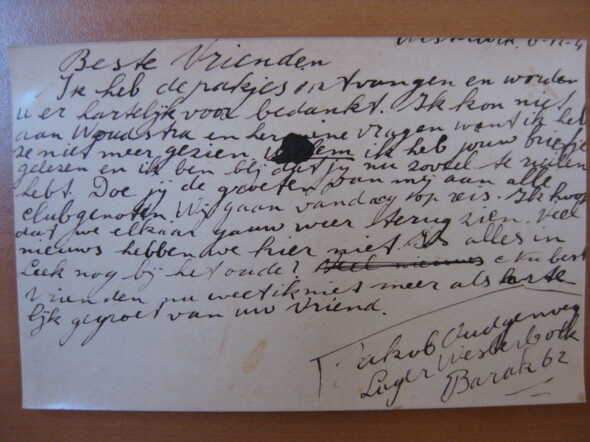 Westerbork, 6-11-4
Beste Vrienden
Ik heb de pakjes ontvangen en worden
u er hartelijk voor bedankt. Ik kon niet
aan Woudstra en hermine vragen want ik heb
ze niet meer gezien. Willem ik heb jouw briefje
gelezen en ik ben blij dat jij nu zoveel te ruilen
hebt. Doe jij de groeten van mij aan alle
clubgenoten. Wij gaan vandaag op reis. Ik hoop
dat we elkaar gauw weer terug zien. Veel
nieuws hebben we hier niet. Is alles in
Leek nog bij het oude? Veel nieuws Nu best
Vrienden nu weet ik niet meer als harte
lijk gegroet van uw Vriend.
Jakob Oudgenoeg
Lager Westerbork
Barak 62